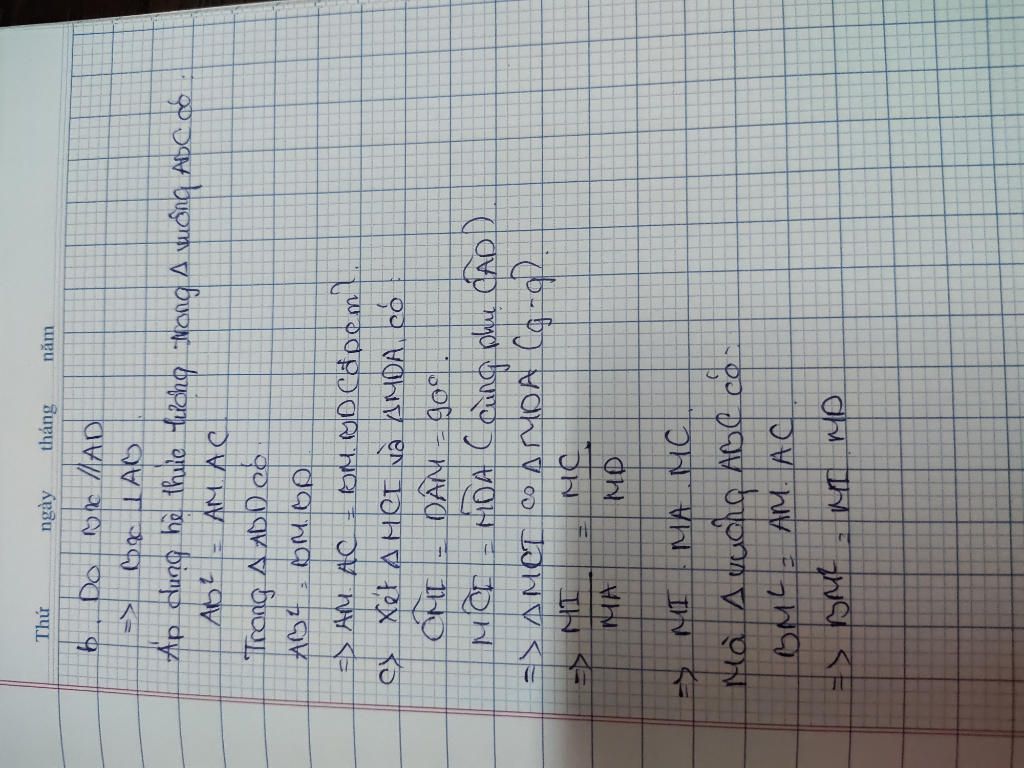 Thứ ngày tháng năm
b. Do Bx // AD
=> Bx ⊥ AB
Áp dụng hệ thức lượng trong Δ vuông ABC có:
AB² = AM. AC
Trong Δ ABD có
AB² = BM. BD
=> AM. AC = BM. BD (đpcm).
c> Xét Δ MCI và Δ MDA có:
CMI = DAM = 90°.
MCI = MDA (cùng phụ CAD).
=> Δ MCI ∽ Δ MDA (g-g).
=> MI/MA = MC/MD
=> MI. MA. MC.
Mà Δ vuông ABC có:
BM² = AM. AC
=> BM² = MI. MD